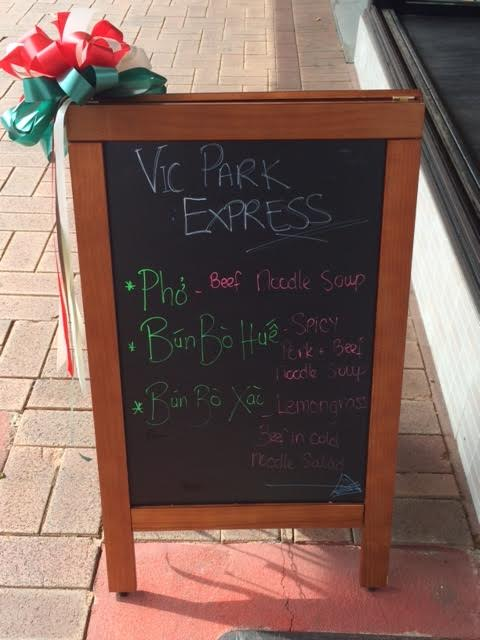 VIC PARK
EXPRESS
* Phở - Beef Noodle Soup
* Bún Bò Huế - SPICY
Pork + Beef
Noodle Soup
* Bún Bò Xác - Lemongrass
Beef in cold
noodle Salad